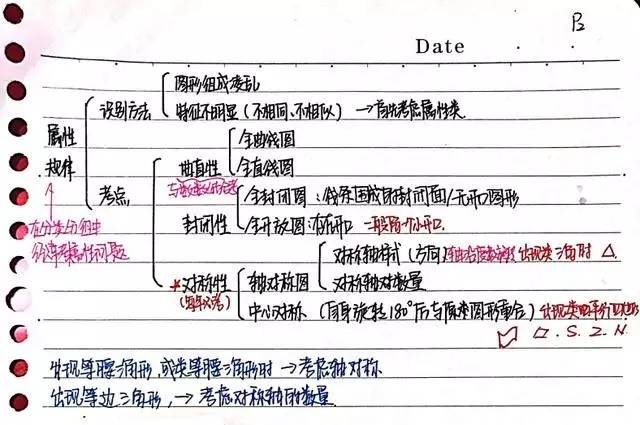 Date
图形组成凌乱
识别方法
特征不明显（不相同、不相似）→首先考虑属性类
属性
规律
全曲线图
曲直性
全直线图
考点
全封闭图：线条围成的封闭面/无开口图形
封闭性
全开放图：有开口 一般留一个小开口
在分类分组中
问题
对称轴样式（方向） 出现类三角时 △
*对称性 轴对称图
对称轴对数量
中心对称（自身旋转180°后与原来图形重合）
▱.S.Z.N
出现等腰三角形，或类等腰三角形时→考虑轴对称
出现等边三角形，→考虑对称轴的数量